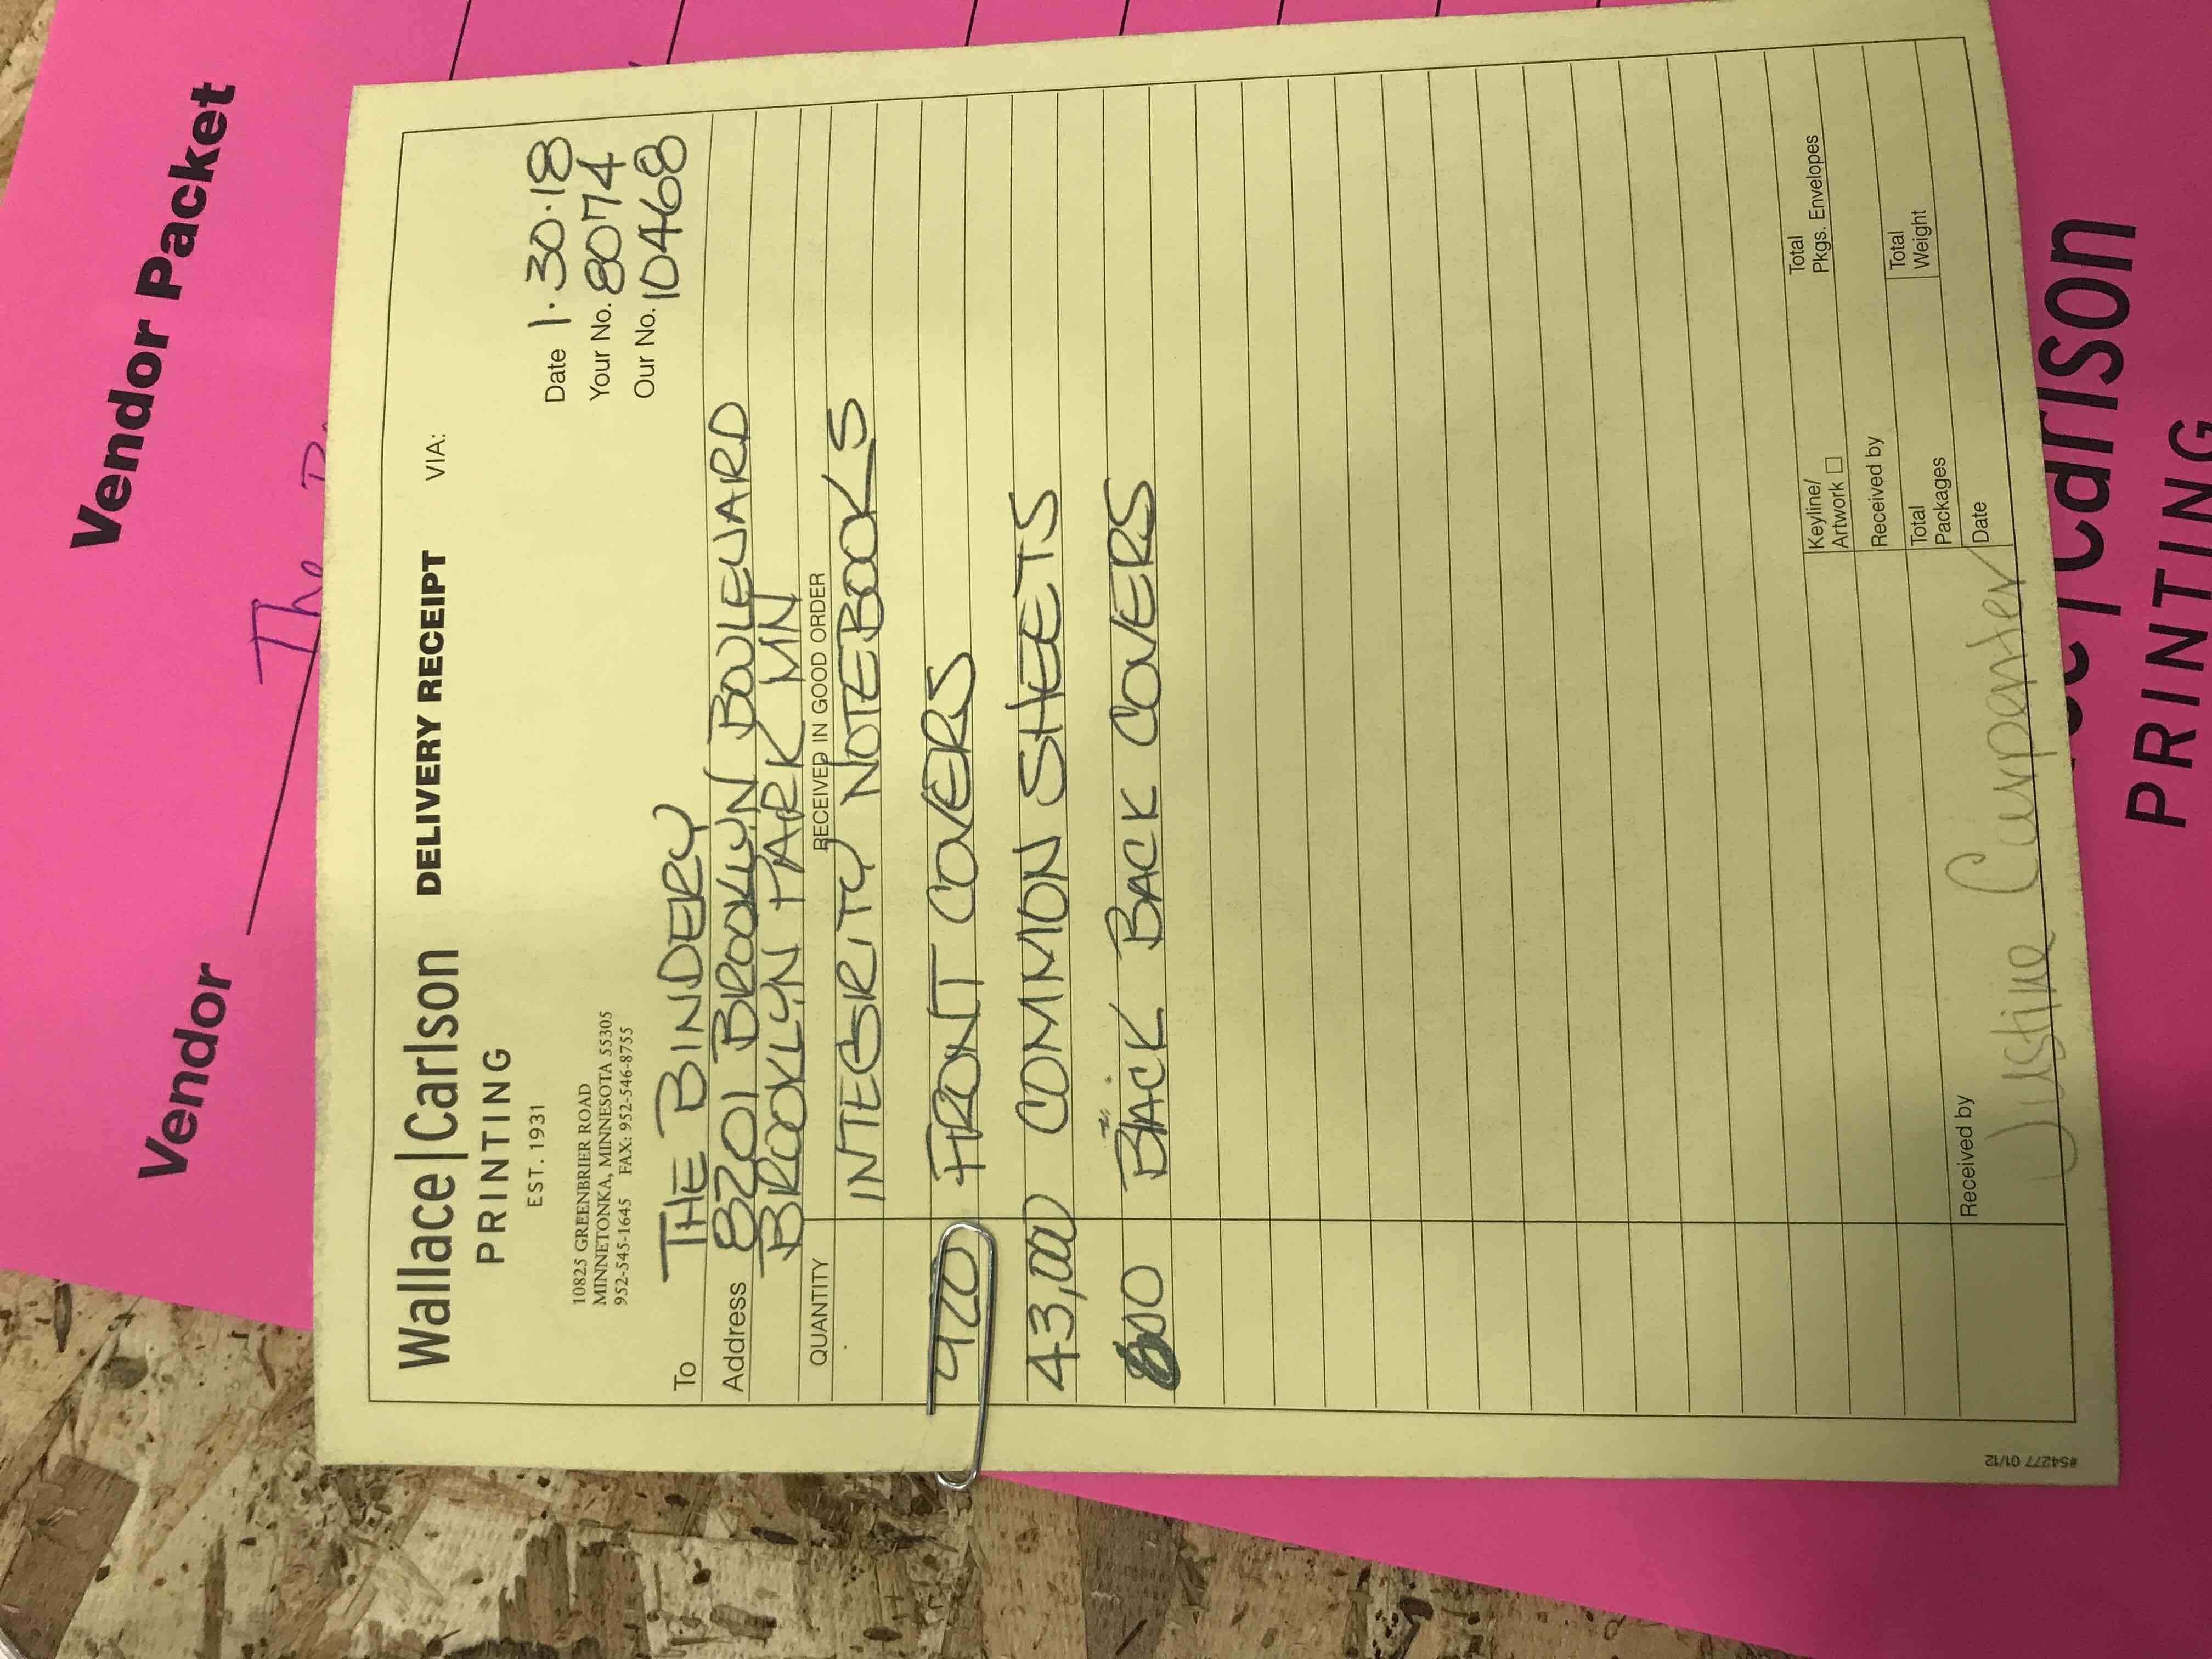 Vendor Packet
Vendor The
Wallace|Carlson DELIVERY RECEIPT VIA:
PRINTING
EST. 1931
Date 1.30.18
Your No. 8074
Our No. 10468
10825 GREENBRIER ROAD
MINNETONKA, MINNESOTA 55305
952-545-1645 FAX: 952-546-8755
To THE BINDERY
Address 8201 BROOKLYN BOULEVARD
BROOKLYN PARK MN
QUANTITY RECEIVED IN GOOD ORDER
INTEGRITY NOTEBOOKS
920 FRONT COVERS
43,000 COMMON SHEETS
800 BACK BACK COVERS
Keyline/
Artwork □
Total
Pkgs. Envelopes
Received by
Total
Packages
Total
Weight
Received by Justine Carpenter
Date
#54277 01/12
Carlson
PRINTING